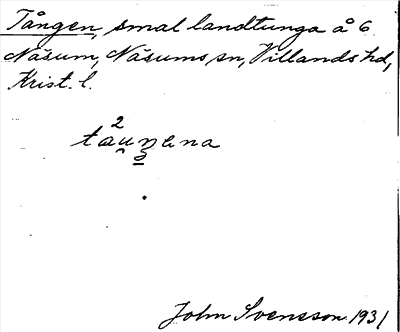 Tången, smal landtunga å 6
Näsum, Näsums sn, Villands hd,
Krist. l.
2
taunena
John Svensson 1931